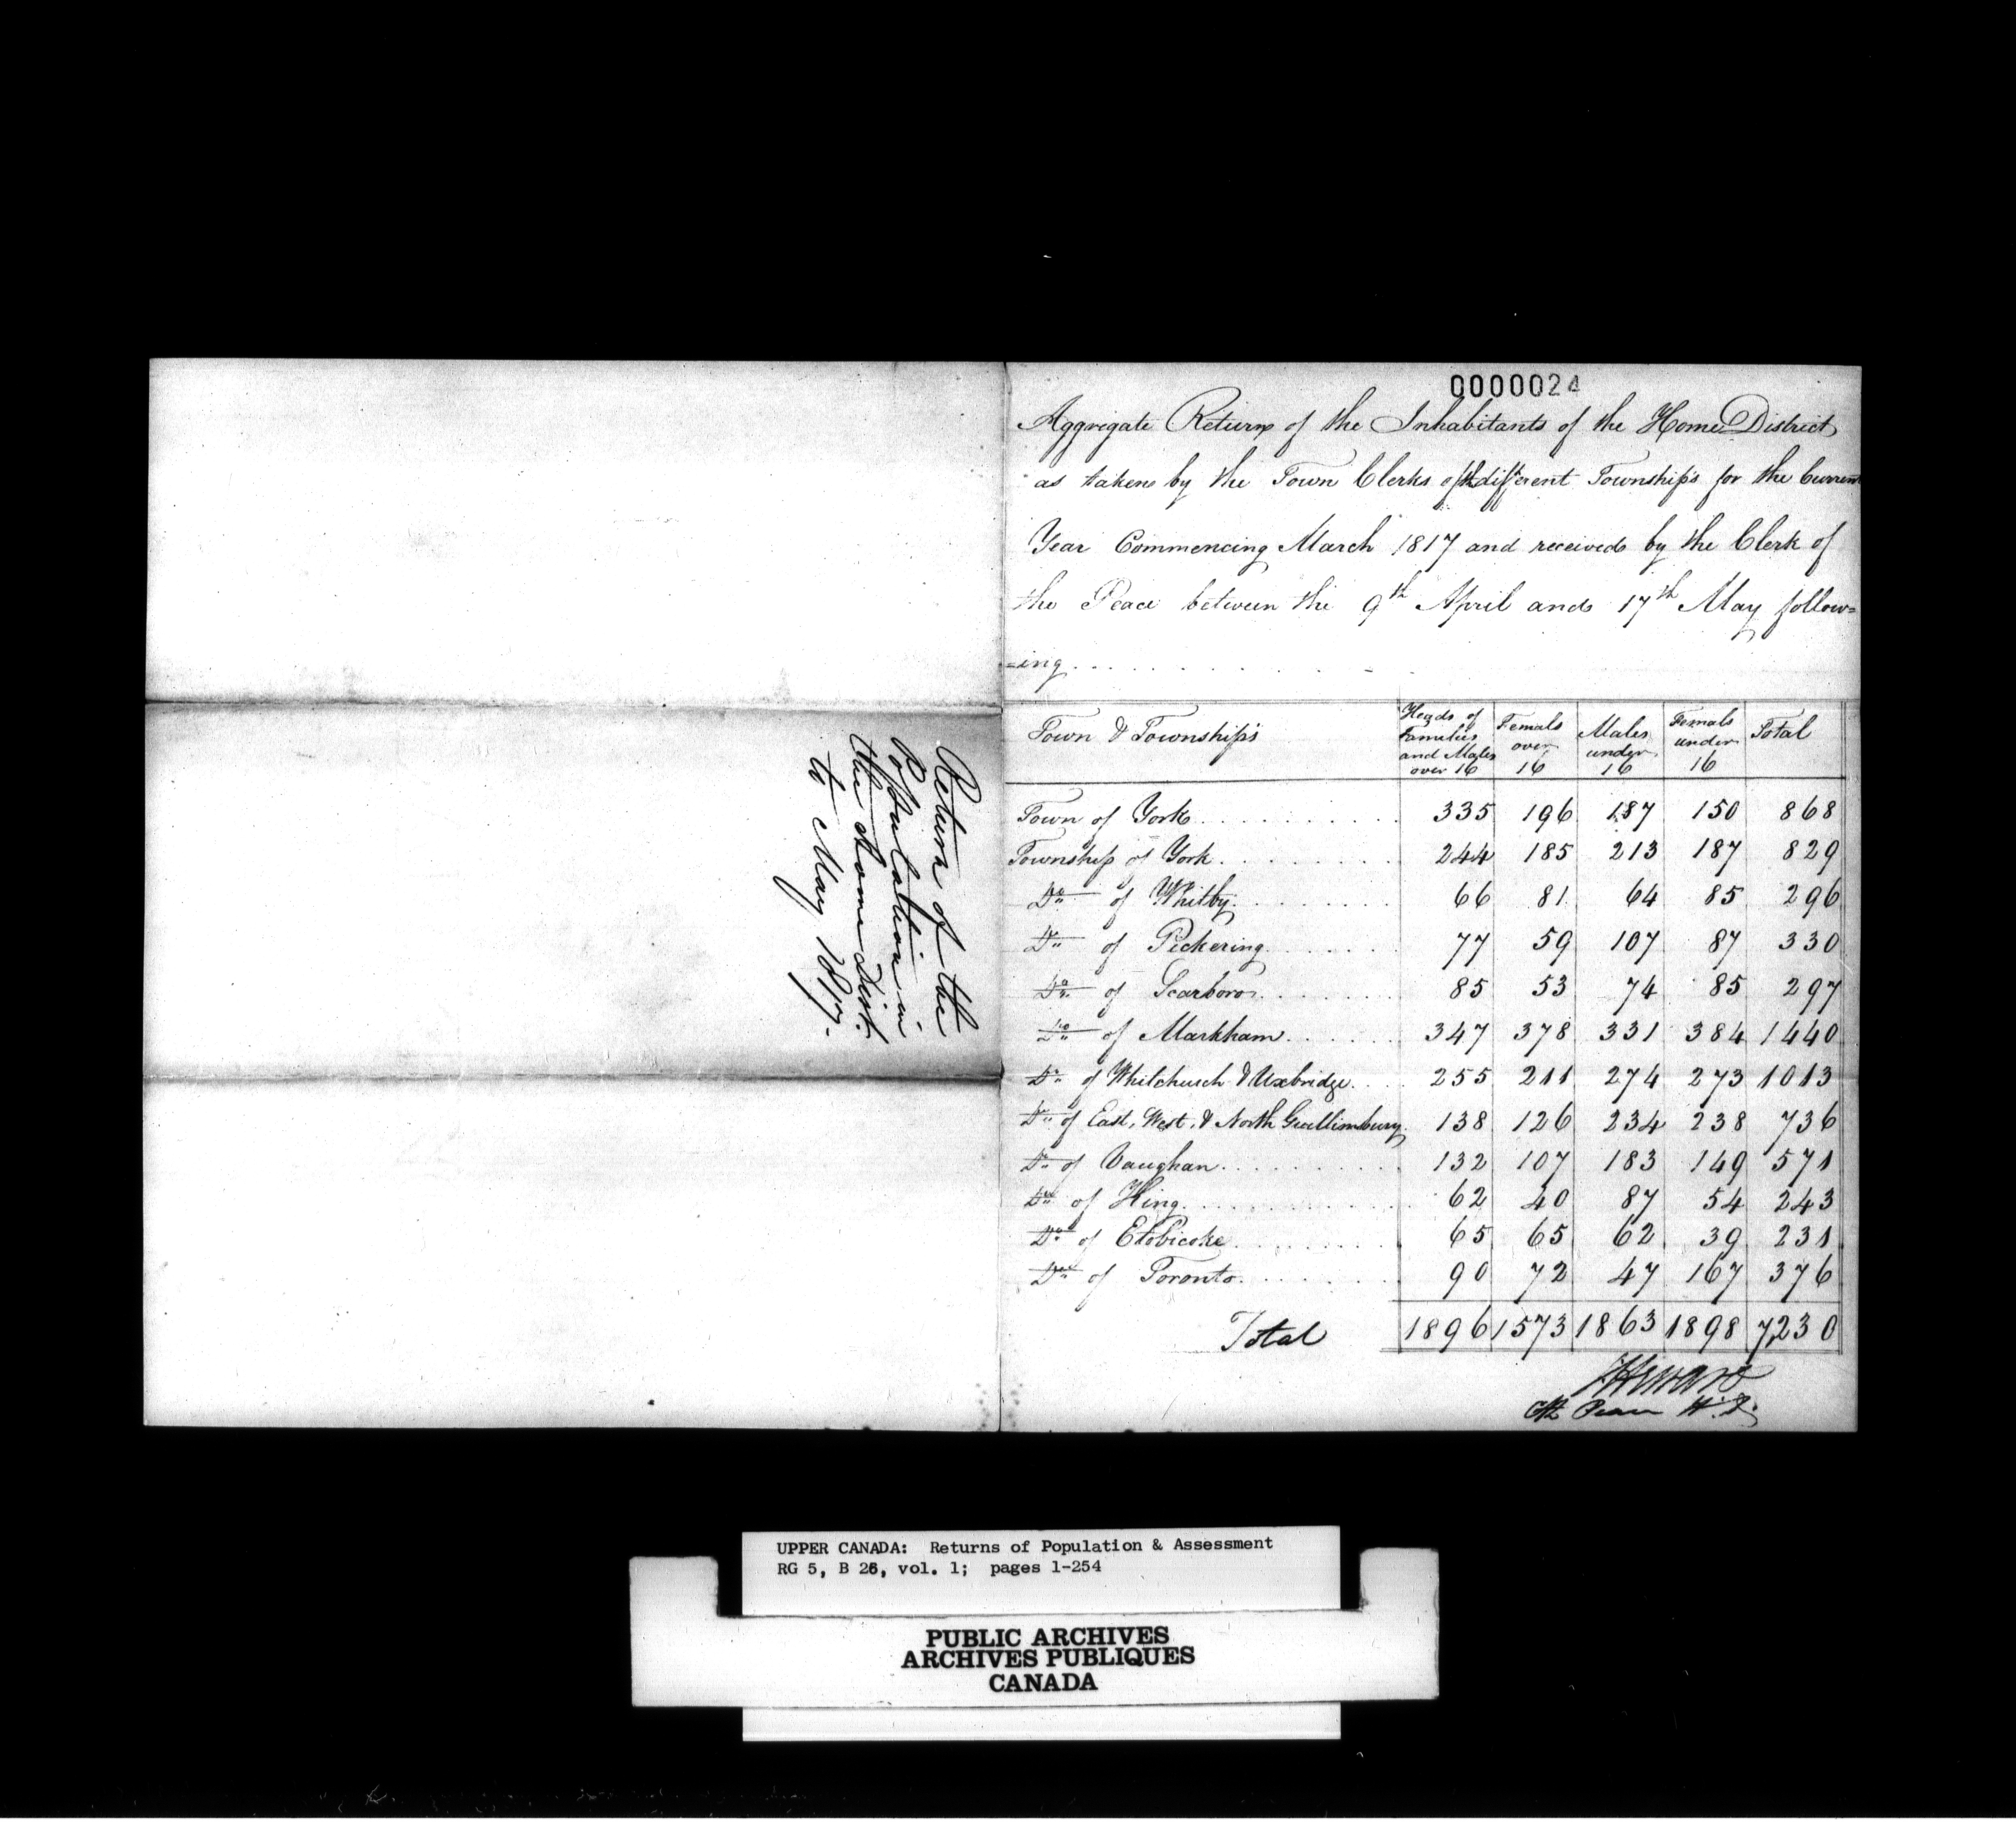 0000024
Aggregate Return of the Inhabitants of the Home District
as taken by the Town Clerks of the different Township's for the Current
Year Commencing March 1817 and received by the Clerk of
the Peace between the 9th April and 17th May follow=
=ing . . . . . . . . . . .
Town & Township's | Heads of Families and Males over 16 | Femals over 16 | Males under 16 | Femals under 16 | Total
Town of York . . . . . . . . . . 335 196 187 150 868
Township of York . . . . . . . . 244 185 213 187 829
Do of Whitby . . . . . . . 66 81 64 85 296
Do of Pickering . . . . . . 77 59 107 87 330
Do of Scarboro . . . . . . 85 53 74 85 297
Do of Markham . . . . . . 347 378 331 384 1440
Do of Whitchurch & Uxbridge . . . 255 211 274 273 1013
Do of East, West, & North Guillimbury . 138 126 234 238 736
Do of Vaughan . . . . . . . . . 132 107 183 149 571
Do of King . . . . . . . . . . . 62 40 87 54 243
Do of Etobicoke . . . . . . . . 65 65 62 39 231
Do of Toronto . . . . . . . 90 72 47 167 376
Total 1896 1573 1863 1898 7,230
SHeward
Clk Peace H.D.
Return of the
Population in
the Home Dist.
to May 1817.
UPPER CANADA: Returns of Population & Assessment
RG 5, B 26, vol. 1; pages 1-254
PUBLIC ARCHIVES
ARCHIVES PUBLIQUES
CANADA